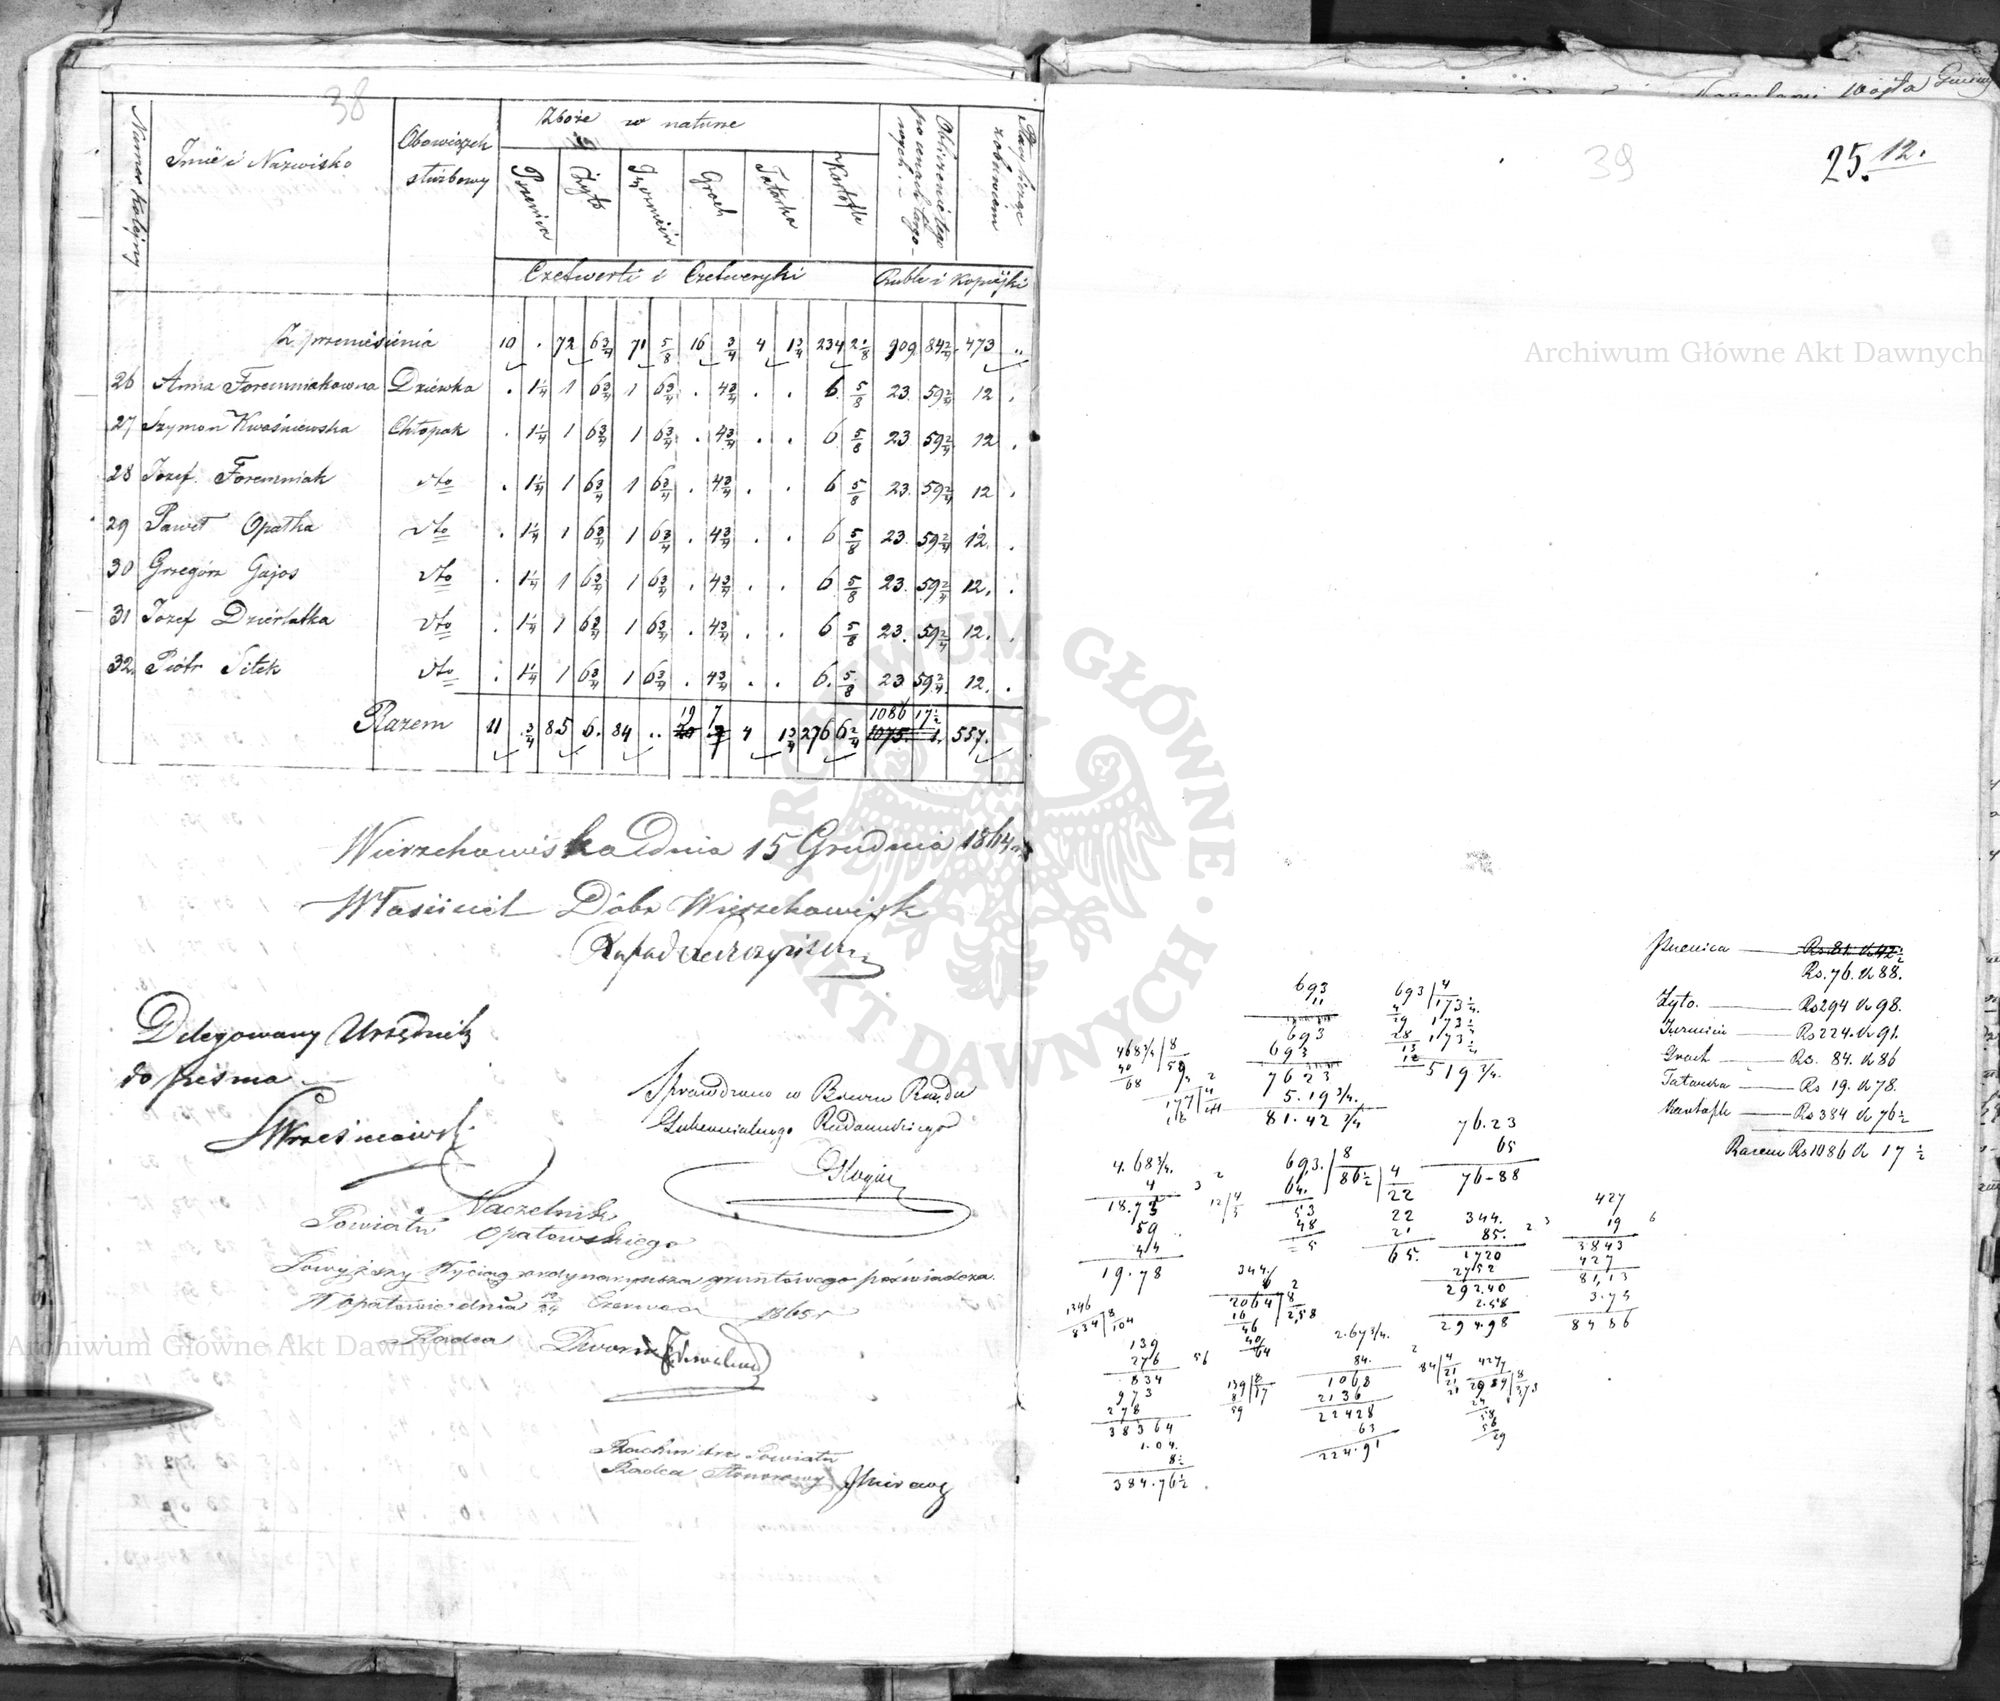 38
Numer kolejny
Imie i Nazwisko
Obowiązek służbowy
Zboże w naturze
Pszenica
Żyto
Jęczmień
Groch
Tatarka
Kartofle
Obliczenie tego po cenach targowych
Czetwerti i Czetweryki
Ruble i kopiejki
Z przeniesienia 10 . 72 6 3/4 71 5/8 16 3/4 4 1 3/4 234 2 1/8 909 84 2/4 473 "
26 Anna Foremniakowna Dziewka . 1 1/4 1 6 3/4 1 6 3/4 . 4 3/4 . . 6 5/8 23. 59 2/4 12 .
27 Szymon Kwaśniewska Chłopak . 1 1/4 1 6 3/4 1 6 3/4 . 4 3/4 . . 6 5/8 23 59 2/4 12 .
28 Jozef Foremniak dto . 1 1/4 1 6 3/4 1 6 3/4 . 4 3/4 . . 6 5/8 23. 59 2/4 12 .
29 Paweł Opałka dto . 1 1/4 1 6 3/4 1 6 3/4 . 4 3/4 . . 6 5/8 23. 59 2/4 12. .
30 Grzegórz Gajos dto . 1 1/4 1 6 3/4 1 6 3/4 . 4 3/4 . . 6 5/8 23. 59 2/4 12. .
31 Jozef Dzierlatka dto . 1 1/4 1 6 3/4 1 6 3/4 . 4 3/4 . . 6 5/8 23. 59 2/4 12. .
32. Piotr Sitek dto . 1 1/4 1 6 3/4 1 6 3/4 . 4 3/4 . . 6. 5/8 23 59 2/4 12. .
19 7 1086 17 1/2
Razem 11 . 3/4 85 6. 84 .. 4 1 3/4 276 6 2/4 1075. 1. 557.
Wierzchowiska Dnia 15 Grudnia 1864
Właściciel Dóbr Wierzchowisk
Delegowany Urzędnik
do pisma
Sprawdzono w Biurze Rządu
Gubernialnego Radomskiego
Naczelnik
Powiatu Opatowskiego
Powyższy Wyciąg ordynaryusza gruntowego poświadcza.
W Opatowie dnia 12/24 Czerwca 1865 r
Radca Dworu
Rachmistrz Powiatu
Radca Honorowy
39
25. 12.
Wójta Gminy
Archiwum Główne Akt Dawnych
ARCHIWUM GŁÓWNE · AKT DAWNYCH ·
Archiwum Główne Akt Dawnych
Pszenica — Rs. 81. k 42 1/2
Rs. 76. k 88.
Zyto. — Rs 294 k 98.
Jęczmień — Rs 224. k 91.
Groch — Rs. 84. k 86
Tatarka — Rs 19. k 78.
Kartofle — Rs 384 k 76 1/2
Razem Rs 1086 k 17 1/2
693
11
693
693
7623
5.19 3/4.
81.42 3/4
693 | 4
173 1/4.
173 1/4
173 1/4
519 3/4.
468 3/4 | 8
76.23
65
76-88
4.68 3/4.
4
18.75
59
44
19.78
693. | 8
86 1/2 | 4
22
22
21
65.
344.
85.
1720
2752
292.40
2.58
294.98
427
19
3843
427
81,13
3.73
8486
2064 | 8
2,58
834 | 8
104
139
276
834
973
278
38364
1.04.
8 1/2
384.76 1/2
139 | 8
17
2.67 3/4.
84.
1068
2136
22428
63
224.91
84 | 4
21